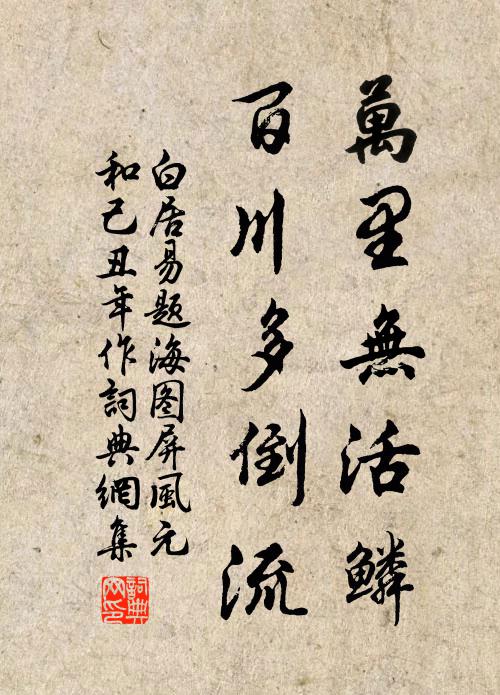 萬里無活鱗
百川多倒流
白居易题海图屏風元
和己丑年作詞典網集
詞典
网印